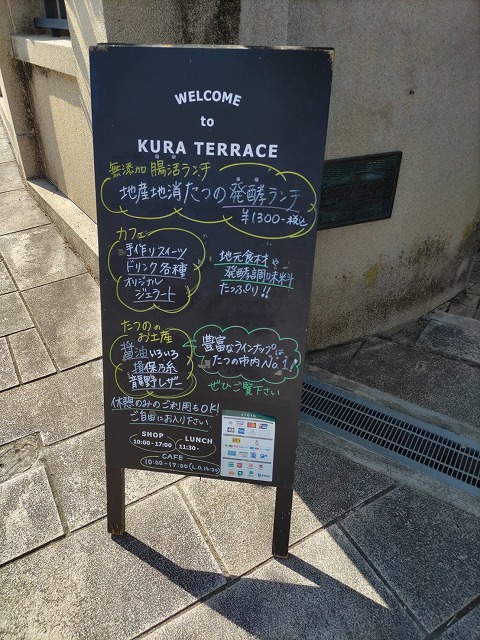 WELCOME
to
KURA TERRACE
無添加 腸活ランチ
地産地消たつの発酵ランチ
¥1300-税込
カフェ
手作りスイーツ
ドリンク各種
オリジナル
ジェラート
地元食材や
発酵調味料
たっぷり!!
たつののお土産
醤油いろいろ
揖保乃糸
龍野レザー
豊富なラインナップは
たつの市内No.1!
ぜひご覧下さい
休憩のみのご利用もOK!
ご自由にお入り下さい
SHOP
10:00-17:00
LUNCH
11:30-
CAFE
10:00-17:00(L.O.16:30)